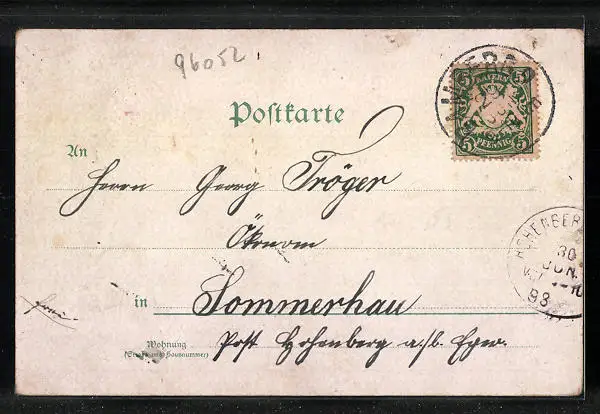 96052
Postkarte
5 BAYERN 5
5 PFENNIG 5
An
Herrn Georg Tröger
Ökonom
in Sommerhau
Wohnung
(Straße und Hausnummer)
Post Hohenberg a./b. Eger.
HOHENBER
30
JUN.
98